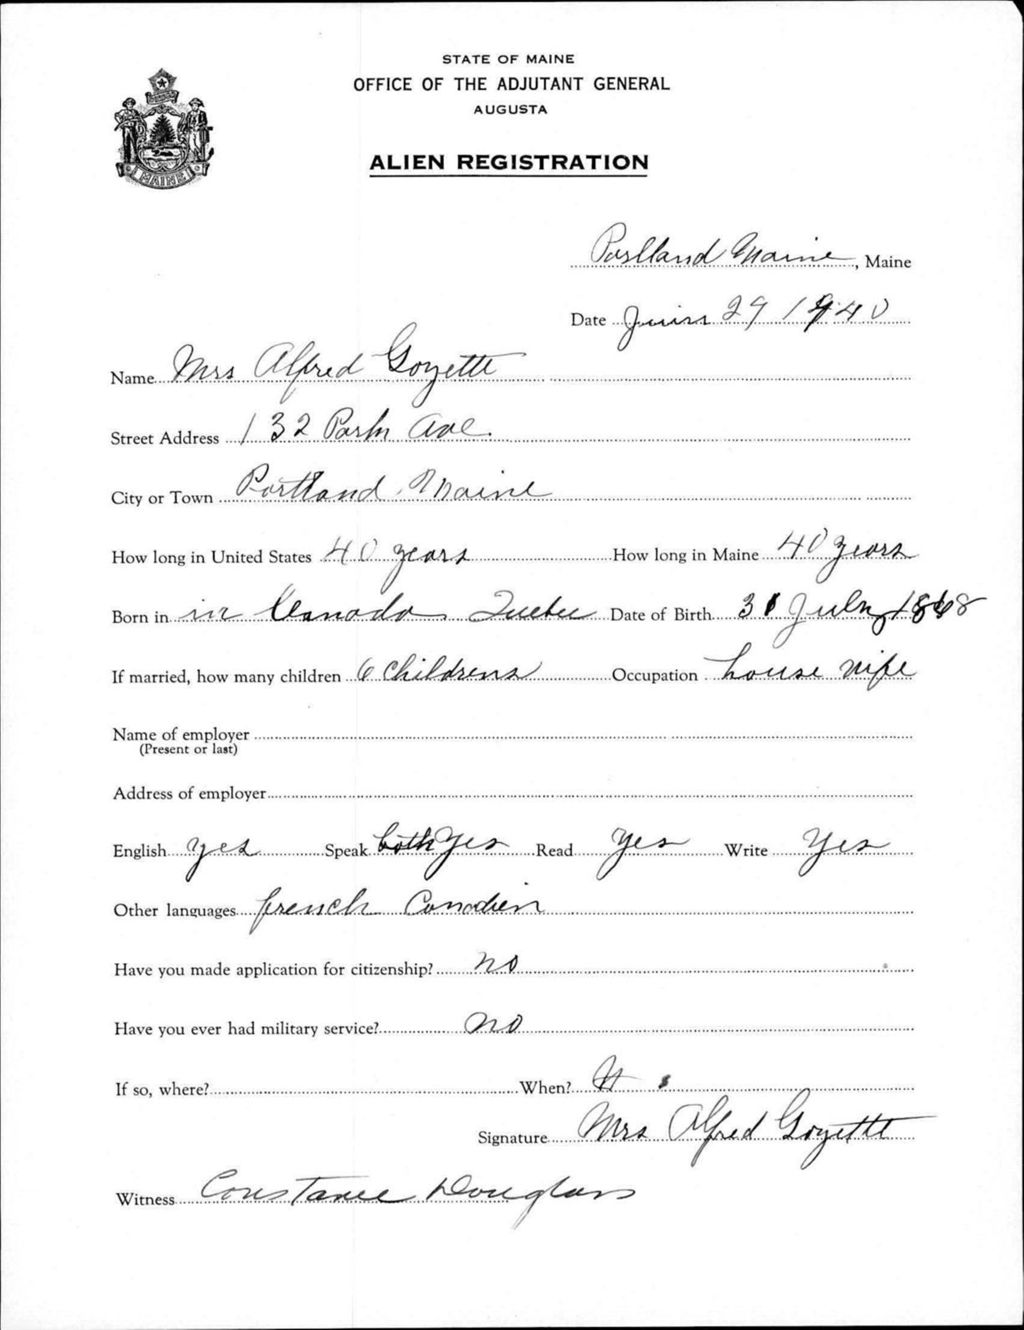 STATE OF MAINE
OFFICE OF THE ADJUTANT GENERAL
AUGUSTA
MAINE
ALIEN REGISTRATION
Portland Maine, Maine
Date 29 1940
Name Mrs Alfred Goyette
Street Address 132 Park Ave.
City or Town Portland, Maine
How long in United States 40 years How long in Maine 40 years
Born in in Canada Quebec Date of Birth 31 July 1868
If married, how many children 6 childrens Occupation house wife
Name of employer
(Present or last)
Address of employer
English yes Speak both yes Read yes Write yes
Other languages french Canadien
Have you made application for citizenship? no
Have you ever had military service? no
If so, where? When?
Signature Mrs Alfred Goyette
Witness Constance Douglass